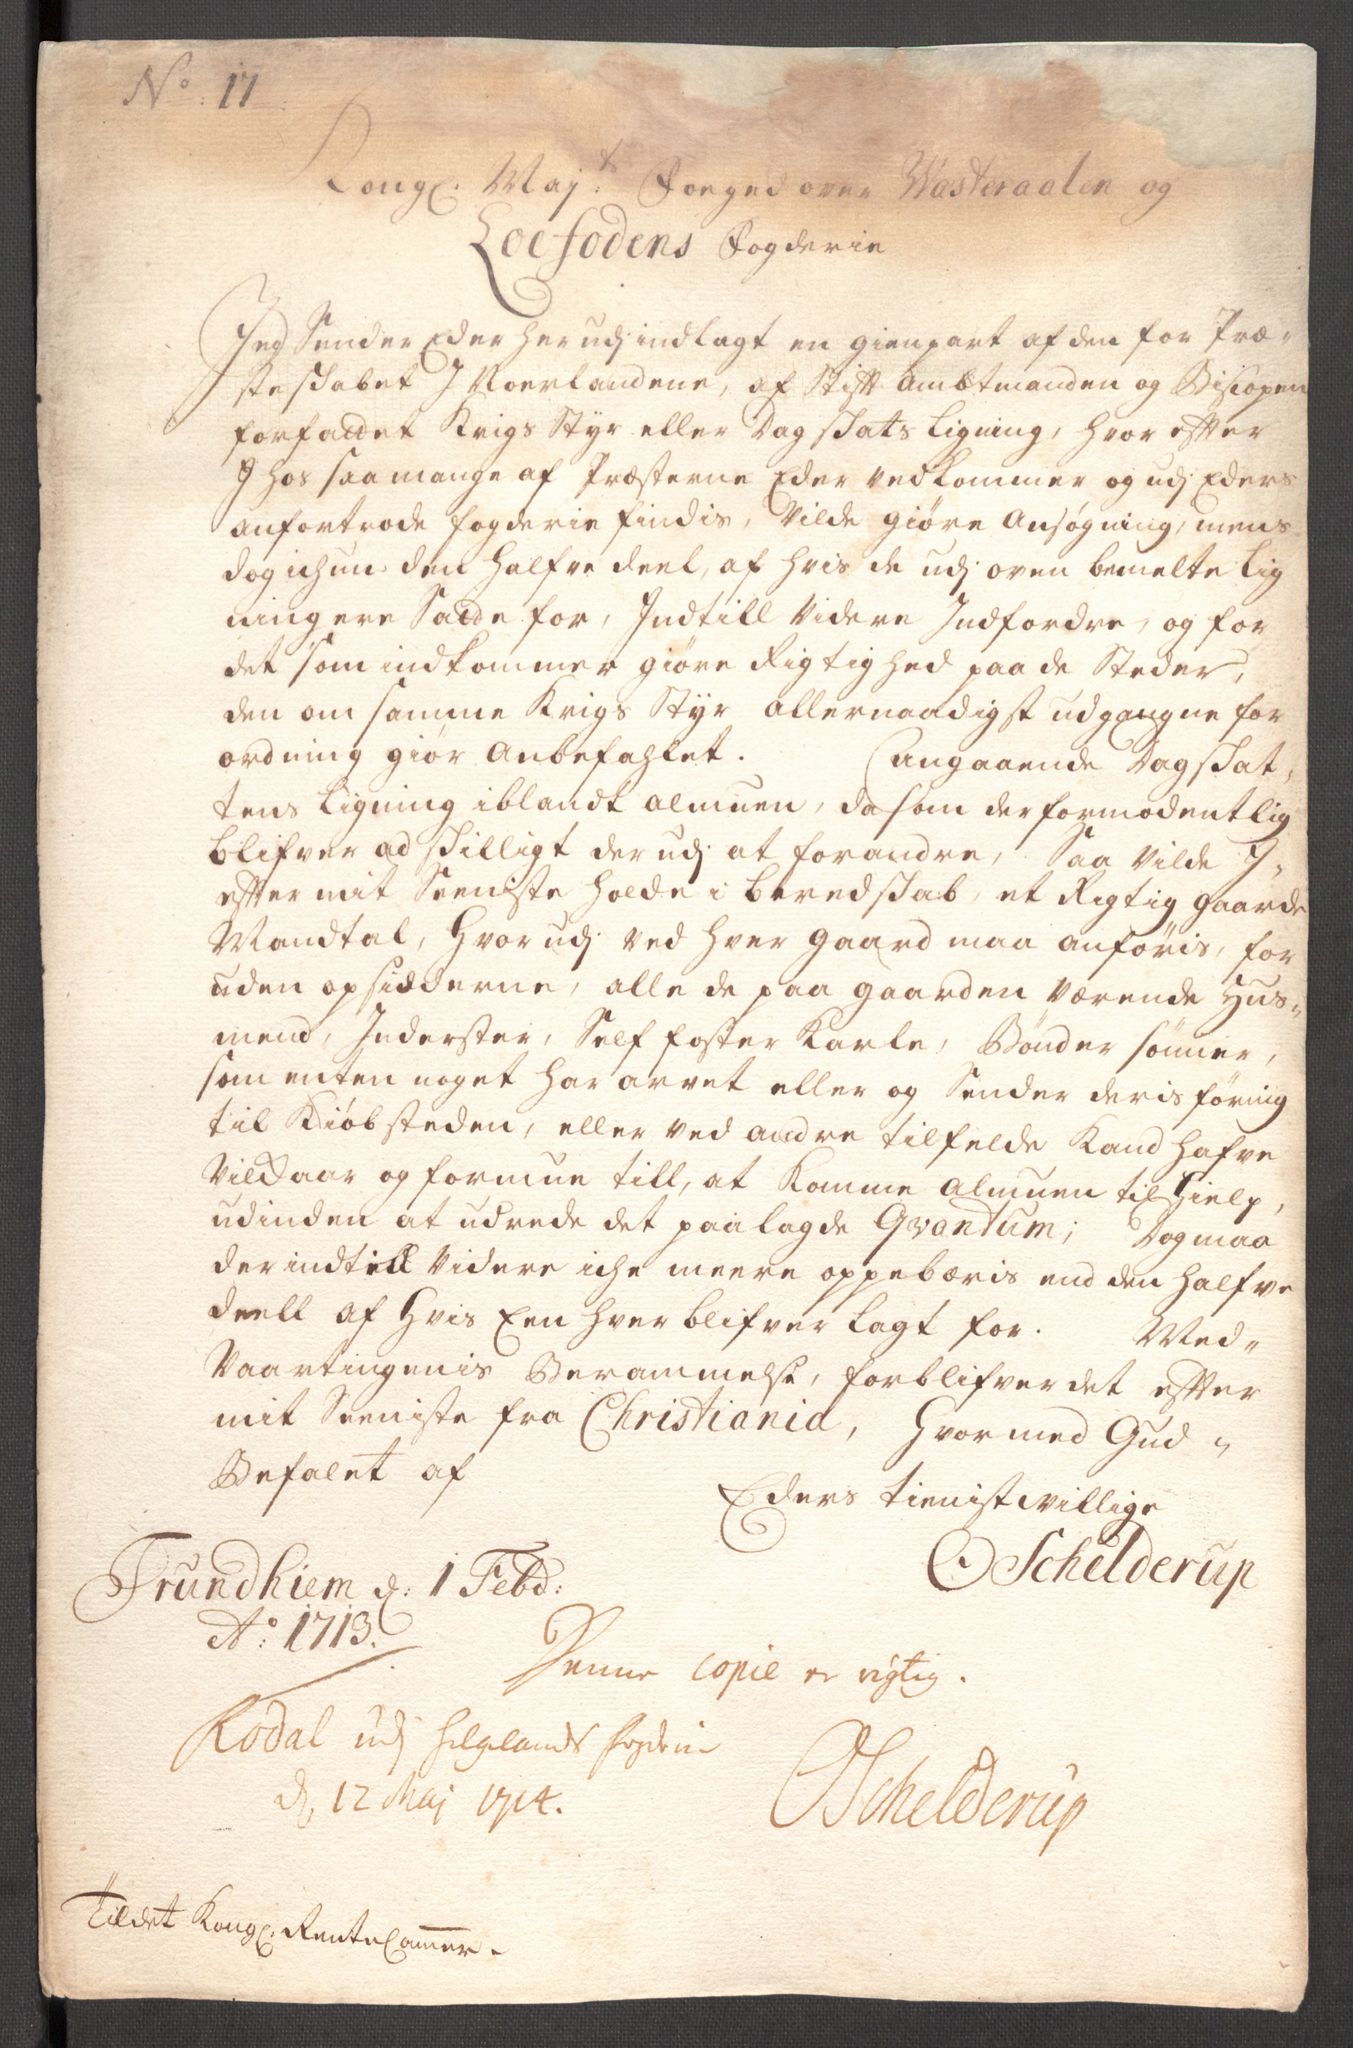 No: 17
Kongl. Maj:ts Foeged over Wæsteraalen og
Loefodens Fogderie
Jeg Sender Eder her udj indlagt en gienpart af den for Præ-
steskabet J Noerlandene, af Stift Ambtmanden og Biscopen
forfaddet Krigs Styr eller Dagskats Ligning, hvor efter
J hos saa mange af Præsterne Eder vedkommer og udj Eders
anfortrode fogderie findis, Vilde giøre Ansøgning, mens
dog ichun den halfve deel, af hvis de udj oven bemelte Lig
ning ere Sadde for, Indtill Videre Indfordre, og for
det som indkommer giøre Rigtighed paa de Steder,
den om samme Krigs Styr allernaadigst udgangne for
ordning giør Anbefahlet. Cangaaende Dagskat-
tens Ligning iblandt almuen, da som der formodentlig
blifver adskilligt der udj at forandre, Saa Vilde J-
efter mit Seeniste holde i beredskab, et Rigtig gaarde
Mandtal, Hvor udj ved hver gaard maa anføris, for
uden opsidderne, alle de paa gaarden værende Hus-
mend, Inderster, Self foster Karle, Bønder sønner,
som enten noget har arvet eller og Sender deris føring
til Kiøbsteden, eller ved andre tilfelde Kand hafve
Vilkaar og formue till, at Komme almuen til Hielp,
udinden at udrede det paalagde Qvantum; Dog maa
der indtill Videre iche meere oppebæris end den halfve
deell af Hvis Een hver blifver lagt for. Med-
Vaartingenis Berammelse, forblifver det efter
mit Seeniste fra Christiania, Hvormed Gud-
Befalet af
Eders tienistvillige
O Schelderup
Trundhiem d: 1 Febr:
Ao: 1713.
Denne copie er rigtig.
Rødal udj Helgelands fogderie
d. 12 Maj 1714.
OSchelderup
Til det Kongl. Rente Cammer.